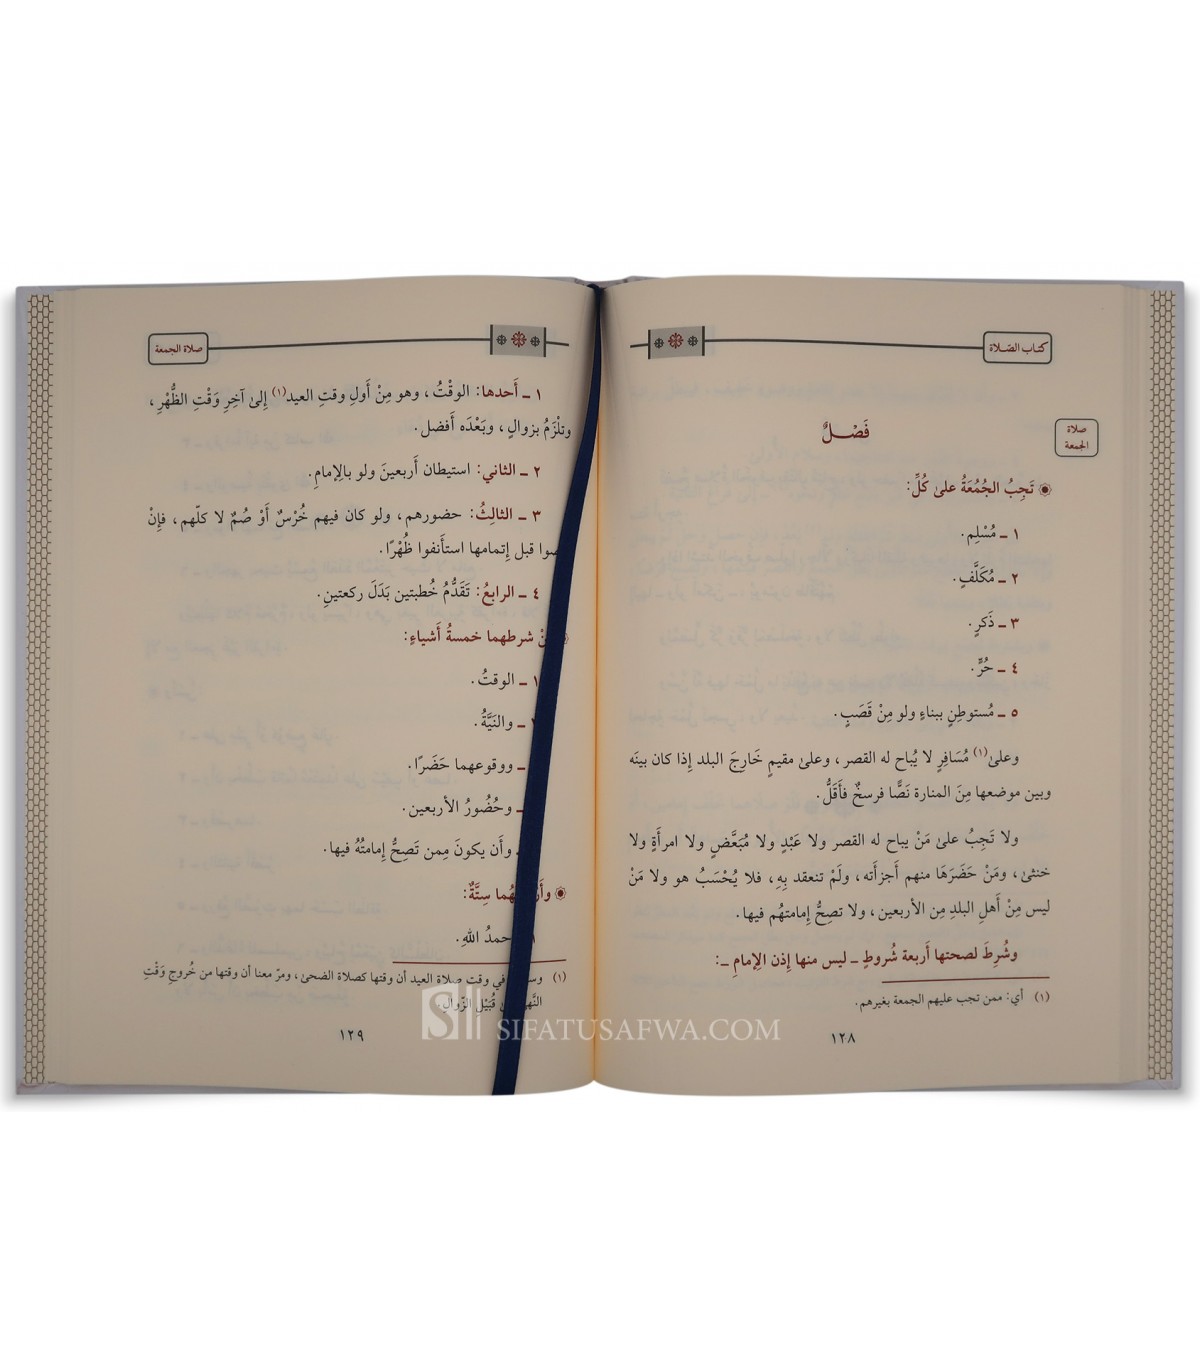 كتاب الصّلاة
صلاة
الجمعة
فَصْلٌ
تَجِبُ الجُمُعَةُ علىٰ كُلِّ:
١ ـ مُسْلِم.
٢ ـ مُكَلَّفٍ.
٣ ـ ذَكرٍ.
٤ ـ حُرٍّ.
٥ ـ مُستوطِنٍ ببناءٍ ولو مِنْ قَصَبٍ.
وعلىٰ(١) مُسَافِرٍ لا يُباح له القصر، وعلىٰ مقيمٍ خَارِجَ البلد إِذا كان بينَه
وبين موضعها مِنَ المنارة نَصًّا فرسخٌ فأَقَلُّ.
ولا تَجِبُ علىٰ مَنْ يباح له القصر ولا عَبْدٍ ولا مُبَعَّضٍ ولا امرأَةٍ ولا
خنثىٰ، ومَنْ حَضَرَهَا منهم أَجزأَته، ولَمْ تنعقد بِهِ، فلا يُحْسَبُ هو ولا مَنْ
ليس مِنْ أَهلِ البلدِ مِن الأربعين، ولا تصِحُّ إِمامتهُم فيها.
وشُرِطَ لصحتها أَربعة شُروطٍ ـ ليس منها إِذن الإمامِ ـ:
(١) أي: ممن تجب عليهم الجمعة بغيرهم.
١٢٨
صلاة الجمعة
١ ـ أَحدها: الوقْتُ، وهو مِنْ أَولِ وقتِ العيد(١) إِلىٰ آخِرِ وَقْتِ الظُّهْرِ،
وتلْزَمُ بزوالٍ، وبَعْدَه أَفضل.
٢ ـ الثاني: استيطان أَربعينَ ولو بالإِمامِ.
٣ ـ الثالِثُ: حضورهم، ولو كان فيهم خُرْسٌ أَوْ صُمٌ لا كلّهم، فإِنْ
قبل إِتمامها استأَنفوا ظُهْرًا.
٤ ـ الرابعُ: تَقَدُّمُ خُطبتين بَدَلَ ركعتينِ.
شرطهما خمسةُ أَشياءٍ:
١ ـ الوقتُ.
ـ والنيَّةُ.
ـ ووقوعهما حَضَرًا.
ـ وحُضُورُ الأربعين.
ـ وأَن يكونَ مِمن تَصِحُّ إِمامتُهُ فيها.
سِتَّةٌ:
حمدُ اللهِ.
(١) في وقت صلاة العيد أن وقتها كصلاة الضحىٰ، ومرّ معنا أن وقتها من خُروجِ وَقْتِ
قُبَيْلِ الزّوال.
١٢٩
SIFATUSAFWA.COM